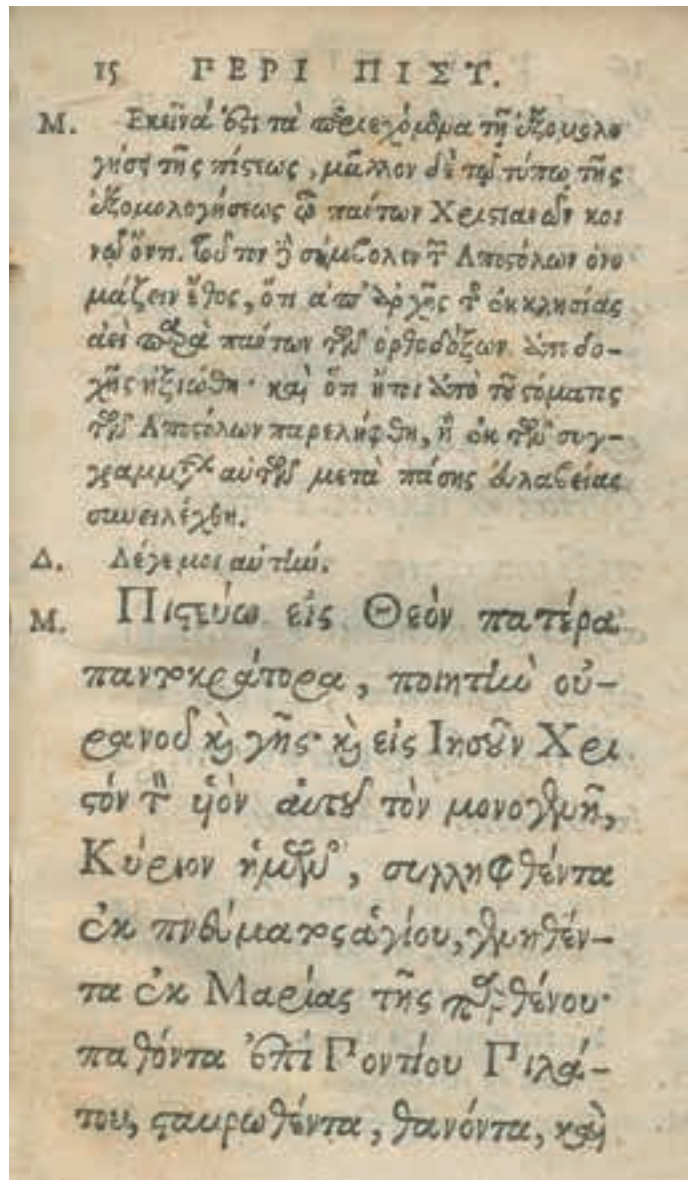 15 ΠΕΡΙ ΠΙΣΤ.
Μ. Ἐκεῖνά ἐστι τὰ περιεχόμενα τῇ ἐξομολο
γήσει τῆς πίστεως, μᾶλλον δὲ τῷ τύπῳ τῆς
ἐξομολογήσεως τῷ πάντων Χριστιανῶν κοι
νῷ ὄντι. τοῦτον γὰρ σύμβολον τῶν Ἀποστόλων ὀνο
μάζειν ἔθος, ὅτι ἀπ' ἀρχῆς τῆς ἐκκλησίας
ἀεὶ παρὰ πάντων τῶν ὀρθοδόξων ἀποδο-
χῆς ἠξιώθη· καὶ ὅτι ἤτοι ἀπὸ τοῦ στόματος
τῶν Ἀποστόλων παρελήφθη, ἢ ἐκ τῶν συγ-
γραμμάτων αὐτῶν μετὰ πάσης εὐλαβείας
συνειλέχθη.
Δ. Λέγε μοι αὐτήν.
Μ. Πιστεύω εἰς Θεὸν πατέρα
παντοκράτορα, ποιητὴν οὐ-
ρανοῦ καὶ γῆς· καὶ εἰς Ἰησοῦν Χρι
στόν τὸν υἱὸν αὐτοῦ τὸν μονογενῆ,
Κύριον ἡμῶν, συλληφθέντα
ἐκ πνεύματος ἁγίου, γεννηθέν-
τα ἐκ Μαρίας τῆς παρθένου·
παθόντα ἐπὶ Ποντίου Πιλά-
του, σταυρωθέντα, θανόντα, καὶ